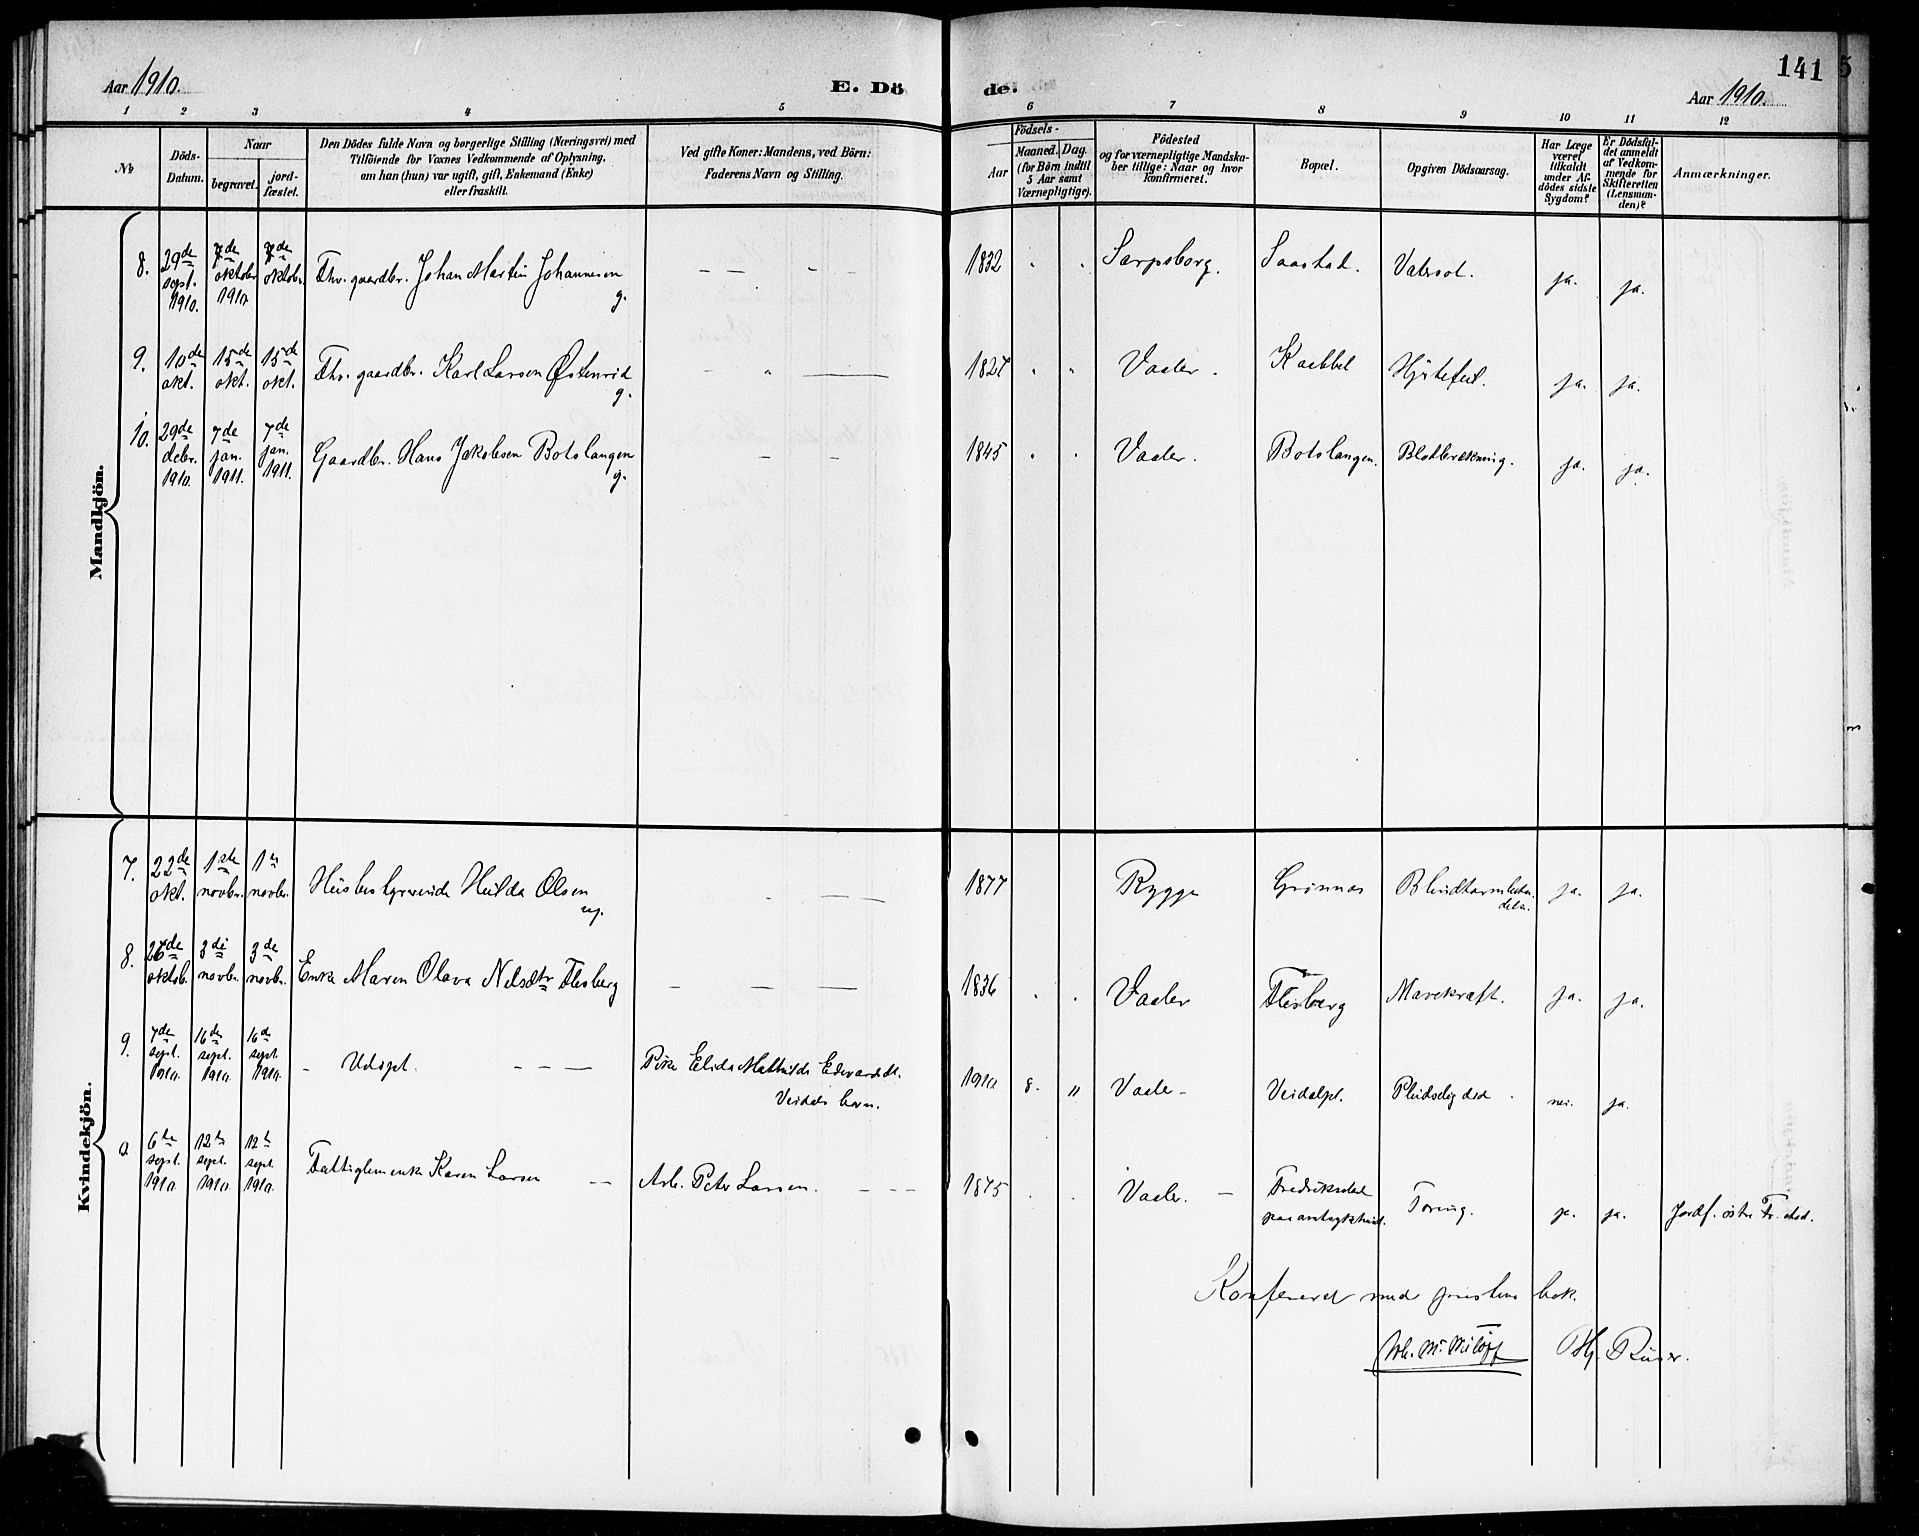 Aar 1910.
E. Dö
de.
141
5
Aar 1910.
1 2 3 4 5 6 7 8 9 10 11 12
№
Döds-Datum.
Naar
begravet.
jord-fæstet.
Den Dödes fulde Navn og borgerlige Stilling (Næringsvei) med
Tilföiende for Voxnes Vedkommende af Oplysning,
om han (hun) var ugift, gift, Enkemand (Enke)
eller fraskilt.
Ved gifte Koner: Mandens, ved Börn:
Faderens Navn og Stilling.
Födsels-
Aar
Maaned. Dag.
(for Börn indtil
5 Aar samt
Værnepligtige).
Födested
og for værnepligtige Mandska-
ber tillige: Naar og hvor
konfirmeret.
Bopæl.
Opgiven Dödsaarsag.
Har Læge
været
tilkaldt
under Af-
dödes sidste
Sygdom?
Er Dödsfal-
det anmeldt
af Vedkom-
mende for
Skifteretten
(Lensman-
den)?
Anmærkninger.
Mandkjön.
8. 29de sept. 1910. 7de oktober 1910. 7de oktobr. Fhv. gaardbr. Johan Martin Johannesen g. 1832 Sarpsborg. Saastad. Vatersot. ja. ja.
9. 10de okt. 15de okt. 15de okt. Fhv. gaardbr. Karl Larsen Østenrød g. 1827 Vaaler. Kabbel Hjertefeil. ja. ja.
10. 29de debr. 1910. 7de jan. 1911. 7de jan. 1911. Gaardbr. Hans Jakobsen Botslangen g. 1845 Vaaler. Botslangen. Blodbrækning. ja. ja.
Kvindekjön.
7. 22de okt. 1ste novbr. 1ste novbr. Husbestyrerinde Hulda Olsen ug. 1877 Rygge Grønnas Blindtarmbeten- delse. ja. ja.
8. 26de oktob. 3die novbr. 3de novbr. Enke Maren Olava Nelsdtr Flesberg 1836 Vaaler Flesberg Mavekræft. ja. ja.
9. 7de sept. 1910. 16de sept. 1910. 16de sept. 1910. Udøpt. Pike Elida Mathilde Edvardsdt. Veidals barn. 1910 8. " Vaaler Veidalpl. Pludselig død. nei. ja.
6te sept. 1910. 12te sept. 1910. 12te sept. 1910. Fattiglem enke Karen Larsen Arb. Peter Larsen. 1875 Vaaler. Fredrikstad paa amtsykehuset. Tæring. ja. ja. Jordf. østre Fr.stad.
Konfereret med prestens bok.